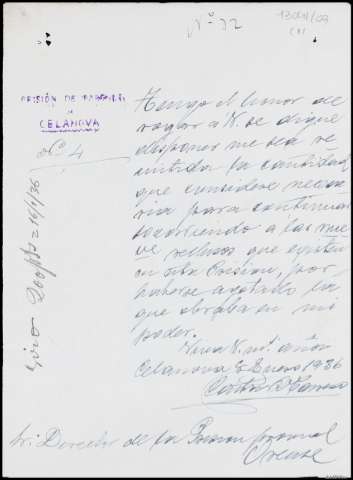 Nº 32
PRISIÓN DE PARTIDO
CELANOVA
Nº 4
Tengo el honor de
rogar a V. se digne
disponer me sea re
mitida la cantidad
que considere necesa
ria para continuar
socorriendo a los nue
ve reclusos que existen
en esta Prision, por
haberse agotado la
que obraba en mi
poder.
Viva V. ms. años
Celanova Enero 1936
Giro 200 pts = 16/1/36
Sr: Director de la Prision provincial
Orense